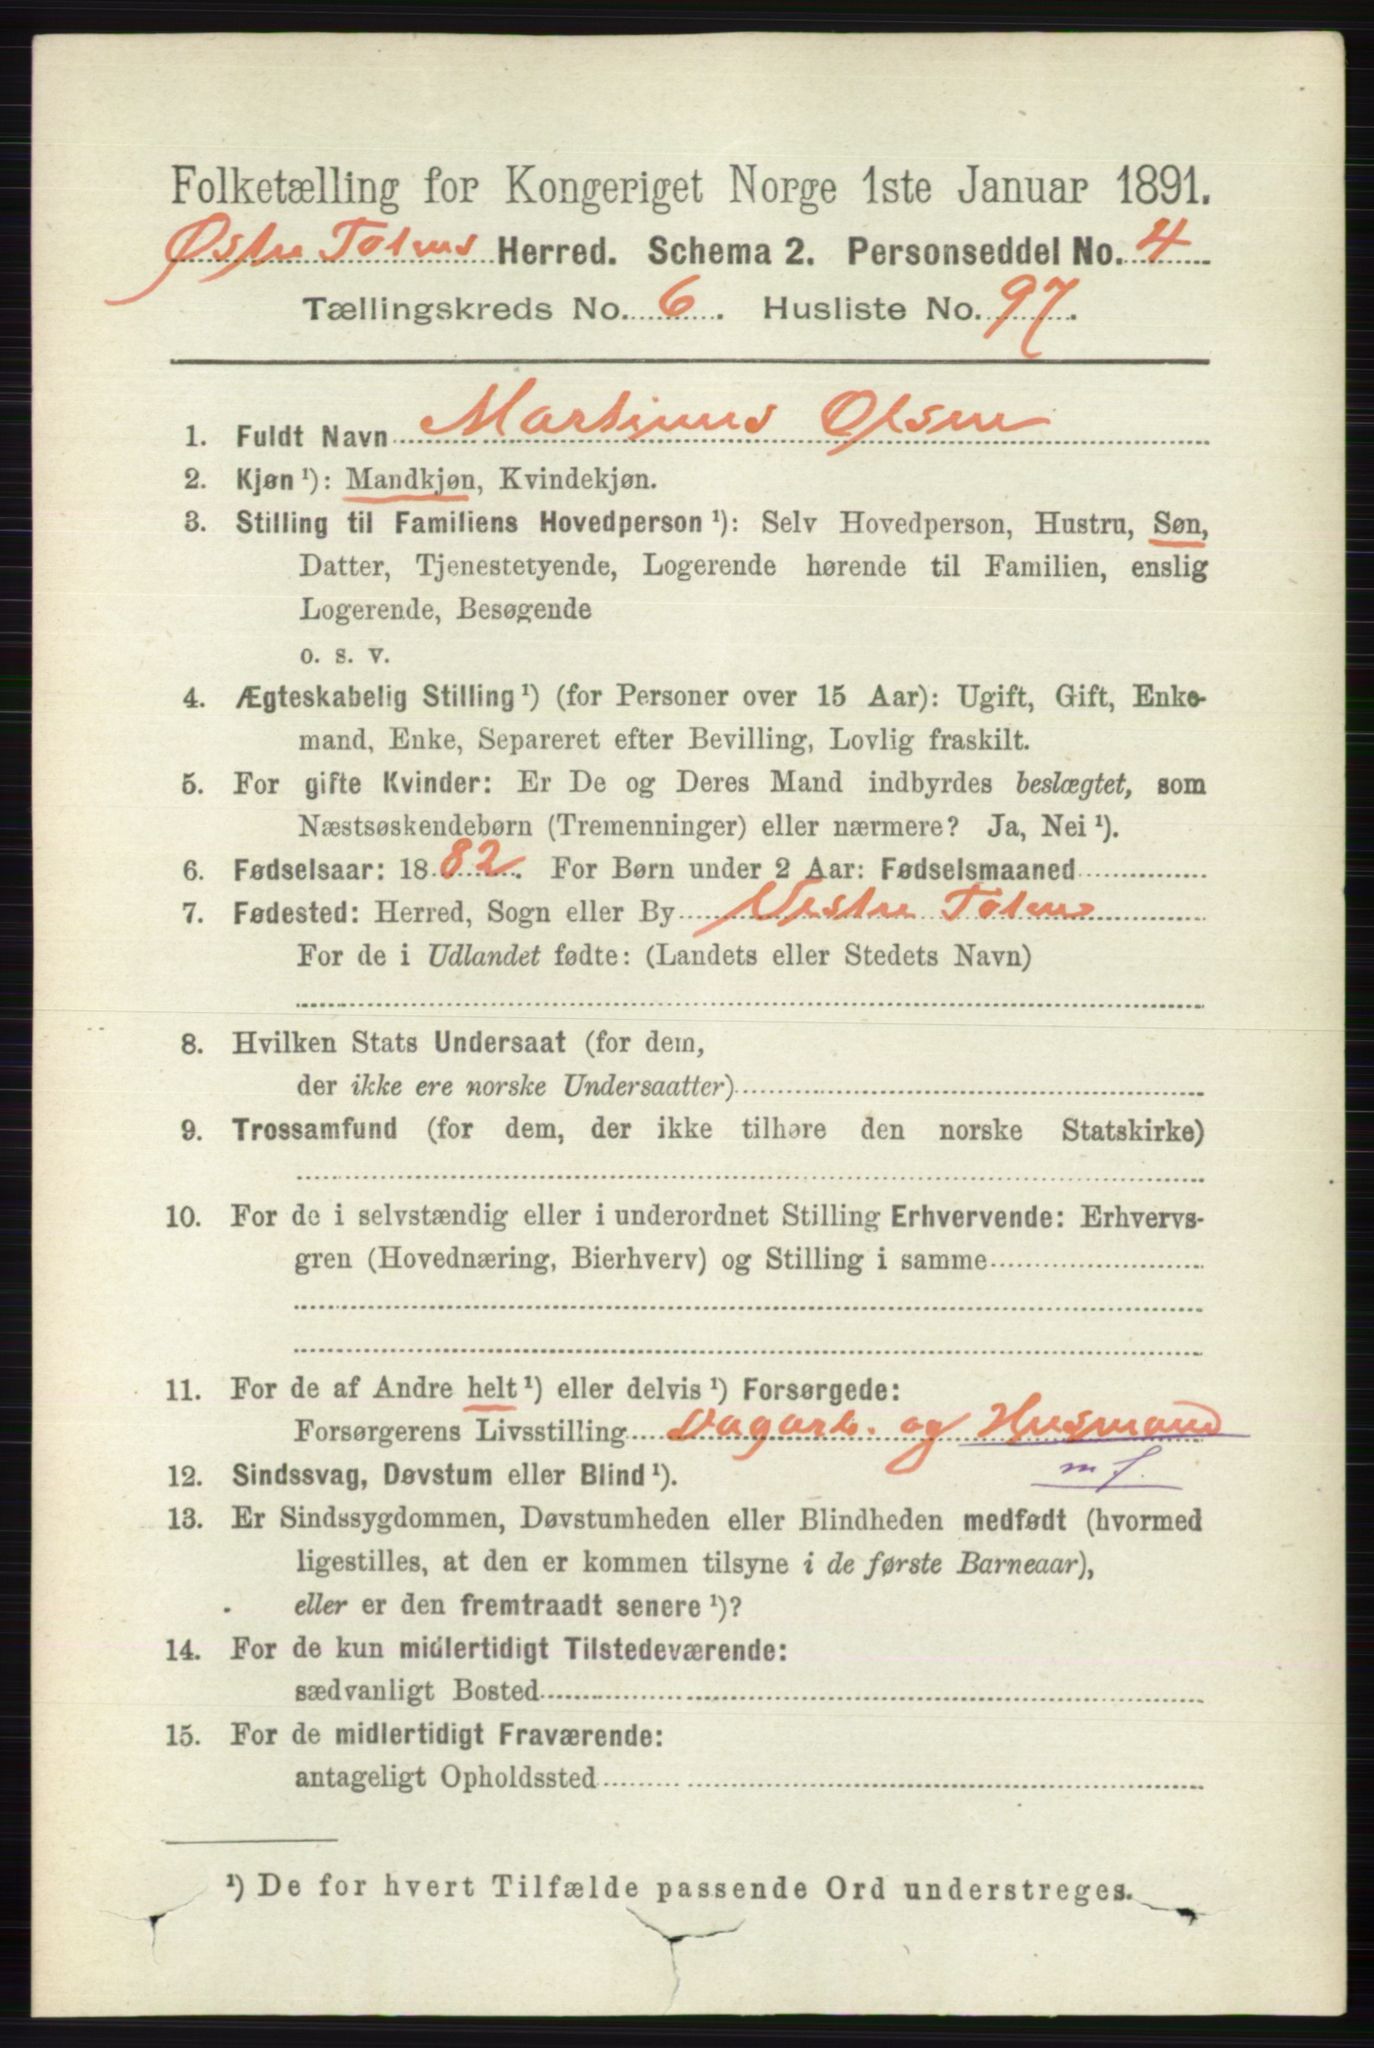 Folketælling for Kongeriget Norge 1ste Januar 1891.
Østre Totens Herred. Schema 2. Personseddel No. 4
Tællingskreds No. 6. Husliste No. 97.
1. Fuldt Navn Martinus Olsen
2. Kjøn ¹): Mandkjøn, Kvindekjøn.
3. Stilling til Familiens Hovedperson ¹): Selv Hovedperson, Hustru, Søn,
Datter, Tjenestetyende, Logerende hørende til Familien, enslig
Logerende, Besøgende
o. s. v.
4. Ægteskabelig Stilling ¹) (for Personer over 15 Aar): Ugift, Gift, Enke-
mand, Enke, Separeret efter Bevilling, Lovlig fraskilt.
5. For gifte Kvinder: Er De og Deres Mand indbyrdes beslægtet, som
Næstsøskendebørn (Tremenninger) eller nærmere? Ja, Nei ¹).
6. Fødselsaar: 1882. For Børn under 2 Aar: Fødselsmaaned
7. Fødested: Herred, Sogn eller By Vestre Totens
For de i Udlandet fødte: (Landets eller Stedets Navn)
8. Hvilken Stats Undersaat (for dem,
der ikke ere norske Undersaatter)
9. Trossamfund (for dem, der ikke tilhøre den norske Statskirke)
10. For de i selvstændig eller i underordnet Stilling Erhvervende: Erhvervs-
gren (Hovednæring, Bierhverv) og Stilling i samme
11. For de af Andre helt ¹) eller delvis ¹) Forsørgede:
Forsørgerens Livsstilling Dagarb. og Husmand
m f.
12. Sindssvag, Døvstum eller Blind ¹).
13. Er Sindssygdommen, Døvstumheden eller Blindheden medfødt (hvormed
ligestilles, at den er kommen tilsyne i de første Barneaar),
eller er den fremtraadt senere ¹)?
14. For de kun midlertidigt Tilstedeværende:
sædvanligt Bosted
15. For de midlertidigt Fraværende:
antageligt Opholdssted
¹) De for hvert Tilfælde passende Ord understreges.